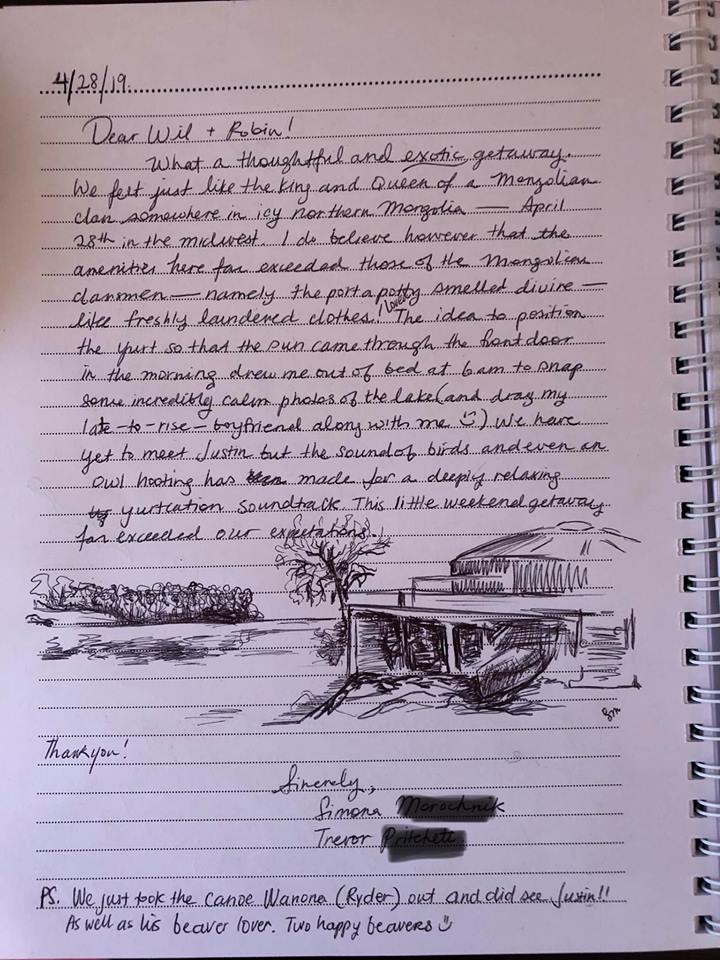 4/28/19.
Dear Wil + Robin!
What a thoughtful and exotic getaway.
We felt just like the King and Queen of a Mongolian
clan somewhere in icy northern Mongolia — April
28th in the midwest. I do believe however that the
amenities here far exceeded those of the Mongolian
clanmen — namely the port a potty smelled divine —
like freshly laundered clothes! Loved The idea to position
the yurt so that the sun came through the front door
in the morning drew me out of bed at 6am to snap
some incredibly calm photos of the lake (and drag my
late-to-rise-boyfriend along with me ☺) We have
yet to meet Justin but the sound of birds and even an
owl hooting has made for a deeply relaxing
yurtcation soundtrack. This little weekend getaway
far exceeded our expectations.
SM
Thank you!
Sincerely,
Simona
Trevor
PS. We just took the canoe Wanona (Ryder) out and did see Justin!!
As well as his beaver lover. Two happy beavers ☺